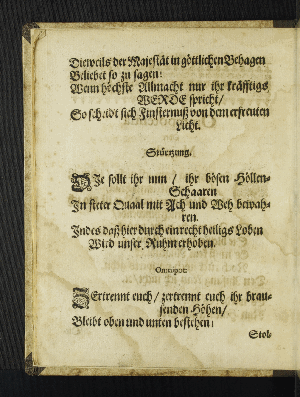 Dieweils der Majestät in göttlichen Behagen
Beliebet so zu sagen:
Wenn höchste Allmacht nur ihr kräfftigs
WERDE spricht/
So scheidt sich Finsternuß von dem erfreuten
Licht.
Stürtzung.
Ihr sollt ihr nun / ihr bösen Höllen-
Schaaren
In steter Quaal mit Ach und Weh bewah-
ren.
Indes daß hier durch ein recht heiligs Loben
Wird unser Ruhm erhoben.
Omnipot:
Zertrennt euch / zertrennt euch ihr brau-
senden Höhen/
Bleibt oben und unten bestehen:
Stol-